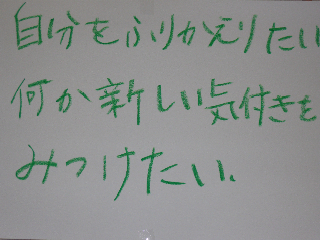 自分をふりかえりたい
何か新しい気付きを
みつけたい.